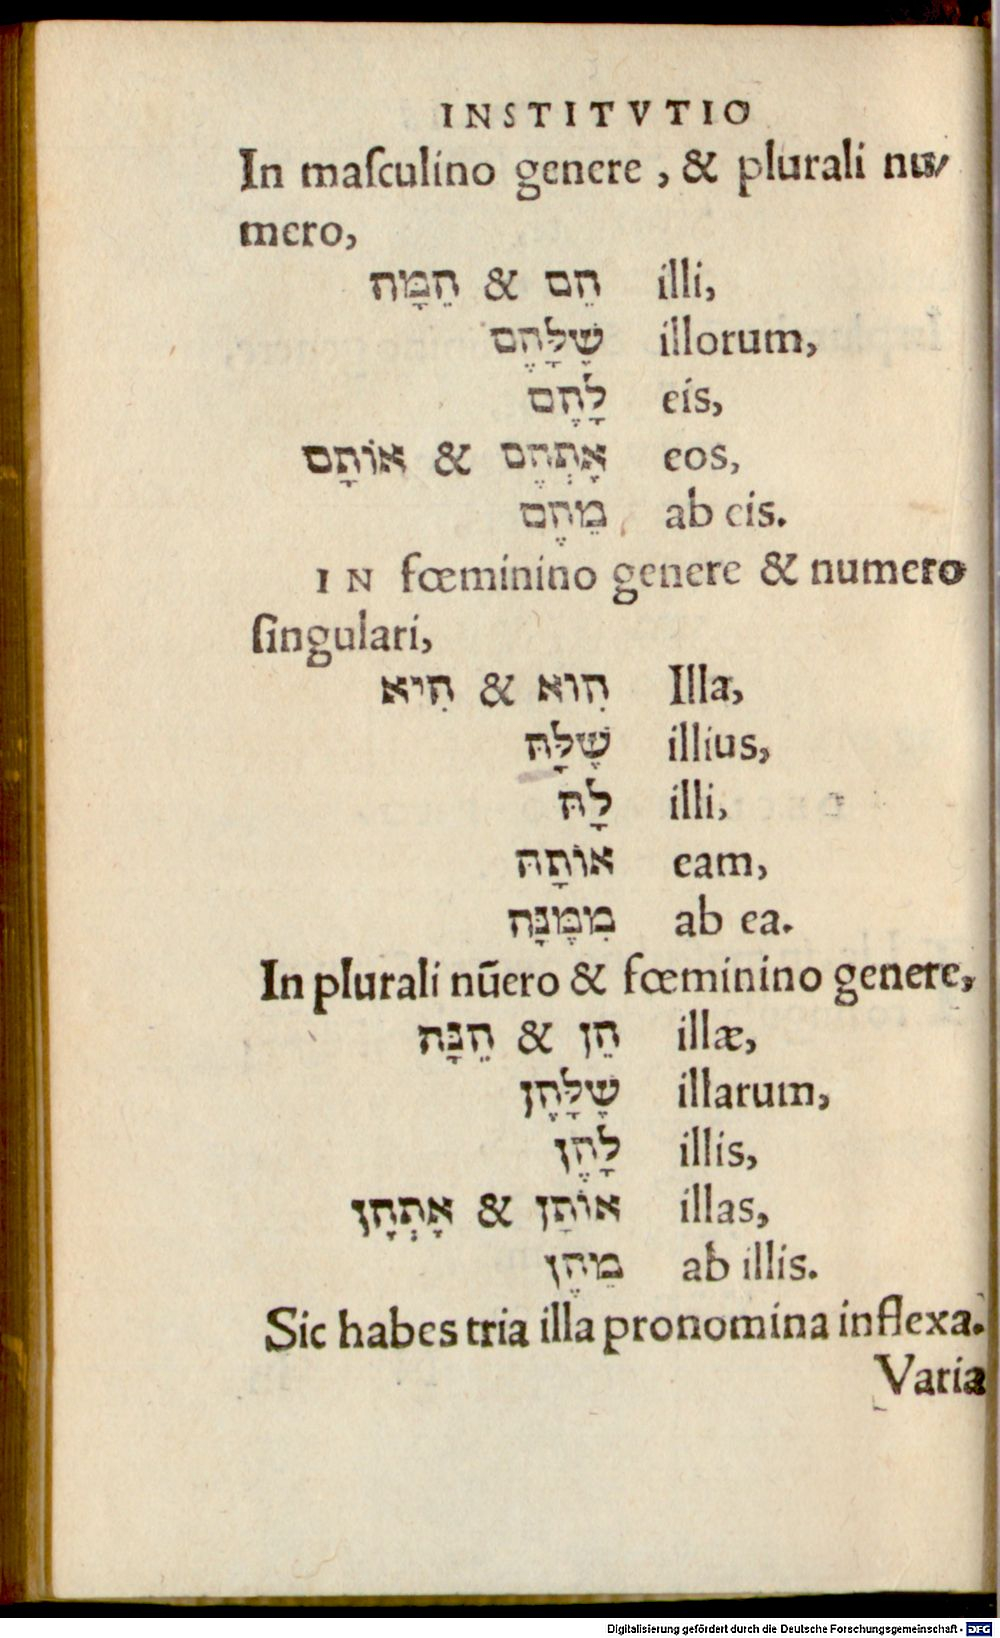 INSTITVTIO
In maſculino genere, & plurali nu/
mero,
הֵם & הֵמָּה illi,
שֶׁלָּהֶם illorum,
לָהֶם eis,
אֶתְהֶם & אוֹתָם eos,
מֵהֶם ab eis.
IN fœminino genere & numero
ſingulari,
הִוא & הִיא Illa,
שֶׁלָּהּ illius,
לָהּ illi,
אוֹתָהּ eam,
מִמֶּנָּה ab ea.
In plurali nūero & fœminino genere,
הֵן & הֵנָּה illæ,
שֶׁלָּהֶן illarum,
לָהֶן illis,
אוֹתָן & אָתְהָן illas,
מֵהֶן ab illis.
Sic habes tria illa pronomina inflexa.
Varia
Digitalisierung gefördert durch die Deutsche Forschungsgemeinschaft - DFG